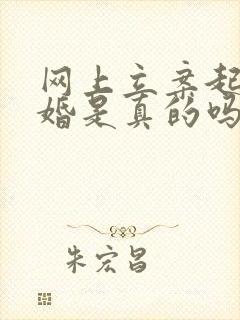 网上立案起
婚是真的吗
朱宏昌